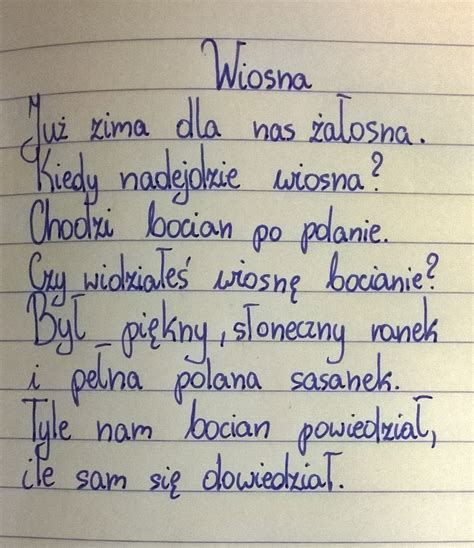 Wiosna
Już zima dla nas żałosna.
Kiedy nadejdzie wiosna?
Chodzi bocian po polanie.
Czy widziałeś wiosnę bocianie?
Był _ piękny, słoneczny ranek
i pełna polana sasanek.
Tyle nam bocian powiedział,
ile sam się dowiedział.